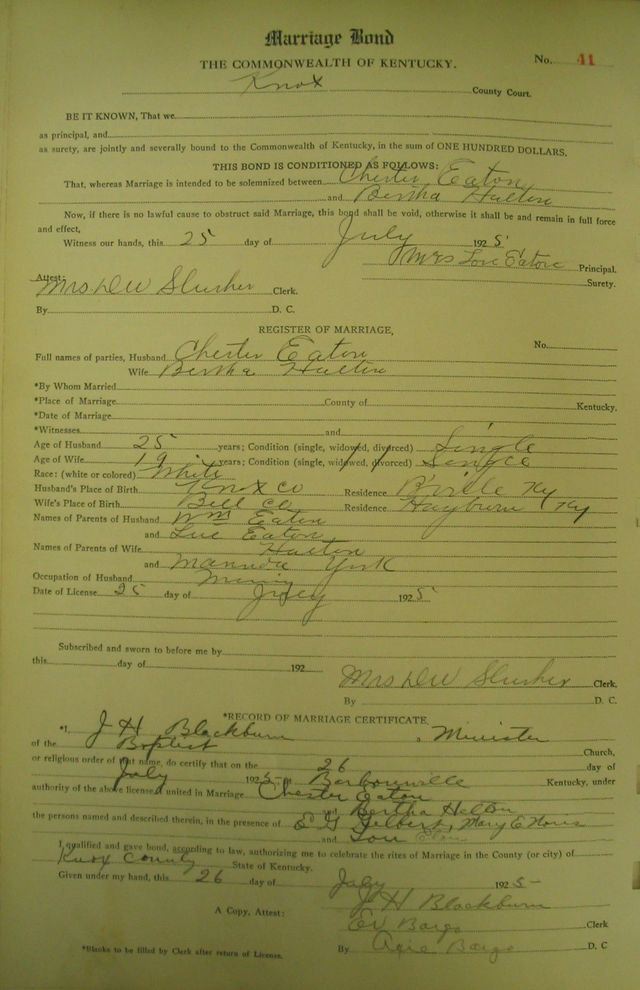 Marriage Bond
THE COMMONWEALTH OF KENTUCKY. No. 41
Knox County Court.
BE IT KNOWN, That we
as principal, and
as surety, are jointly and severally bound to the Commonwealth of Kentucky, in the sum of ONE HUNDRED DOLLARS.
THIS BOND IS CONDITIONED AS FOLLOWS:
That, whereas Marriage is intended to be solemnized between Chester Eaton
and Bertha Halton
Now, if there is no lawful cause to obstruct said Marriage, this bond shall be void, otherwise it shall be and remain in full force
and effect,
Witness our hands, this 25 day of July 1925
Mrs Eaton Principal.
Surety.
Attest:
Mrs DW Slusher Clerk.
By D. C.
REGISTER OF MARRIAGE,
No.
Full names of parties, Husband Chester Eaton
Wife Bertha Halton
*By Whom Married
*Place of Marriage County of Kentucky.
*Date of Marriage
*Witnesses and
Age of Husband 25 years; Condition (single, widowed, divorced) Single
Age of Wife 19 years; Condition (single, widowed, divorced) Single
Race: (white or colored) White
Husband's Place of Birth Knox Co Residence Ky
Wife's Place of Birth Bell Co Residence Hayburn Ky
Names of Parents of Husband Wm Eaton
and Lue Eaton
Names of Parents of Wife Halton
and York
Occupation of Husband Mining
Date of License 25 day of July 1925
Subscribed and sworn to before me by
this day of 192
Mrs DW Slusher Clerk.
By D. C.
*RECORD OF MARRIAGE CERTIFICATE.
*I, J H Blackburn a Minister
of the Baptist Church,
or religious order of that name, do certify that on the 26 day of
July 1925 in Barbourville Kentucky, under
authority of the above license, united in Marriage Chester Eaton
and Bertha Helton
the persons named and described therein, in the presence of E G Gelbert, Mary E
and Lou
I qualified and gave bond, according to law, authorizing me to celebrate the rites of Marriage in the County (or city) of
Knox County State of Kentucky.
Given under my hand, this 26 day of July 1925
J H Blackburn
A Copy, Attest: Bargo Clerk
By Bargo D. C
*Blanks to be filled by Clerk after return of License.